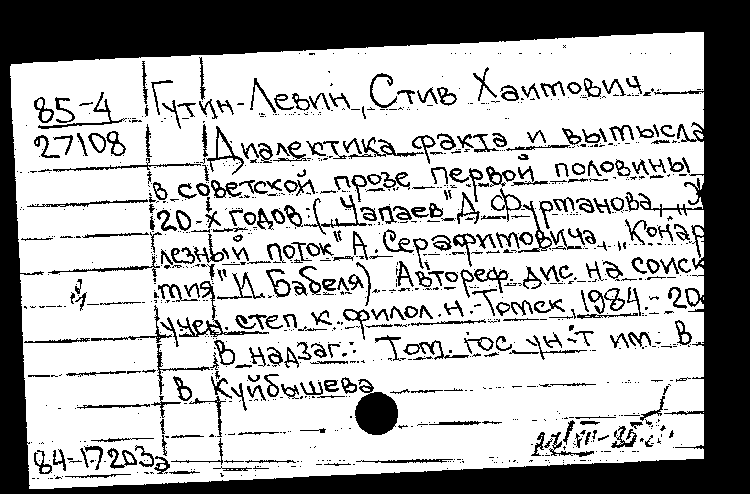 85-4
27108
Гутин-Левин, Стив Хаимович.
Диалектика факта и вымысла
в советской прозе первой половины
20-х годов: („Чапаев" Д. Фурманова, „Же
лезный поток" А. Серафимовича, „Конар
мия" И. Бабеля) Автореф. дис. на соиск
учен. степ. к. филол. н. - Томск, 1984. - 20с
В надзаг.: Том. гос. ун-т им. В
В. Куйбышева
84-17203а